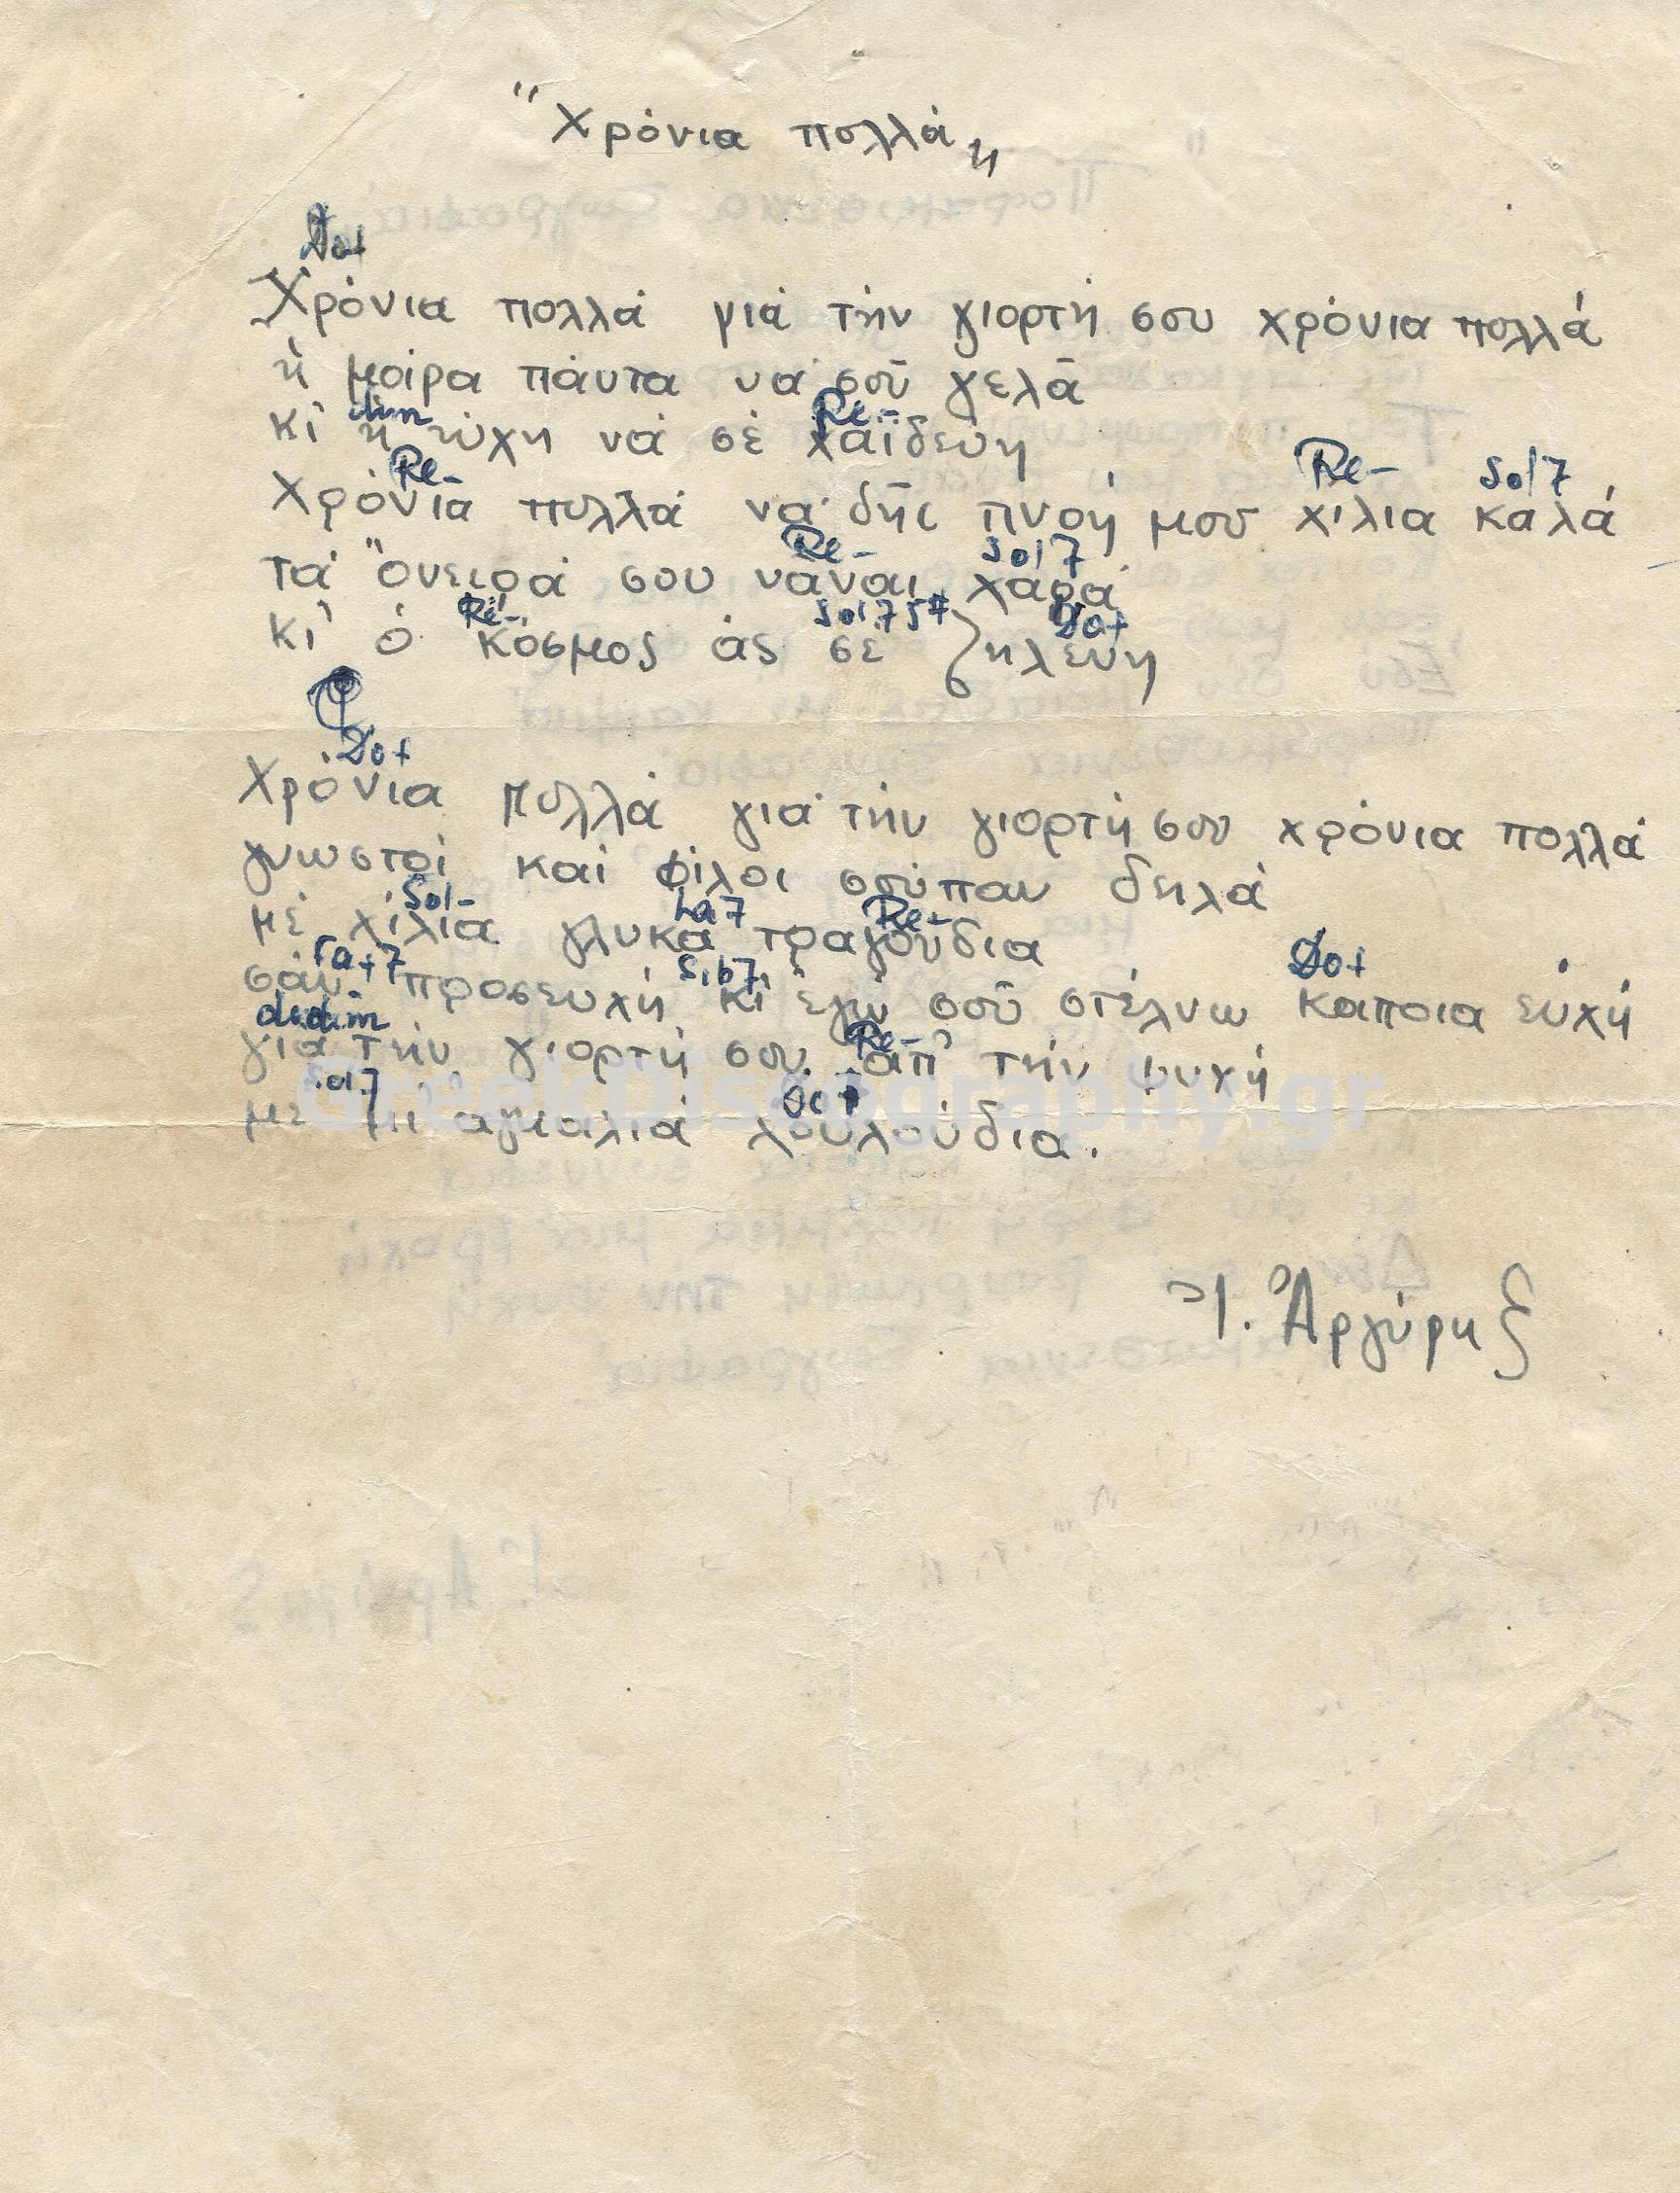 "Χρόνια πολλά„
Do+
Χρόνια πολλά γιά τήν γιορτή σου χρόνια πολλά
ἡ μοίρα πάντα νά σοῦ γελᾶ
dim Re-
κι ἡ τύχη νά σέ χαϊδεύη
Re- Re- Sol7
Χρόνια πολλά νά δῆς πνοή μου χίλια καλά
Re- Sol7
τά ὄνειρά σου νἆναι χαρά
Re- Sol75# Do+
κι ὁ κόσμος ἄς σέ ζηλεύη
Do+
Χρόνια πολλά γιά τήν γιορτή σου χρόνια πολλά
γνωστοί καί φίλοι σοὖπαν δηλά
Sol- La7 Re-
μέ χίλια γλυκά τραγούδια
Fa+7 Sib7 Do+
σάν προσευχή κι ἐγώ σοῦ στέλνω κάποια εὐχή
dim Re-
γιά τήν γιορτή σου ἀπ' τήν ψυχή
Sol7 Do+
μέ μι ἀγκαλιά λουλούδια.
GreekDiscography.gr
Ι. Ἀργύρης